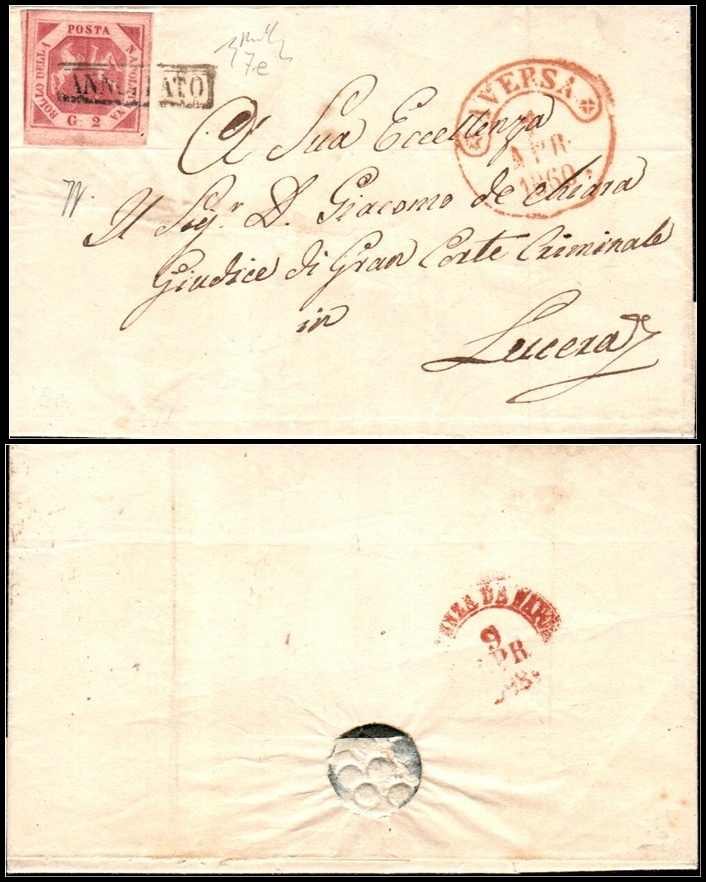 BOLLO DELLA POSTA NAPOLETANA
G. 2
ANNULLATO
7e
AVERSA
APR.
1860
A Sua Eccellenza
Il Sigr. D. Giacomo de Chiara
Giudice di Gran Corte Criminale
in
Lucera
9
APR